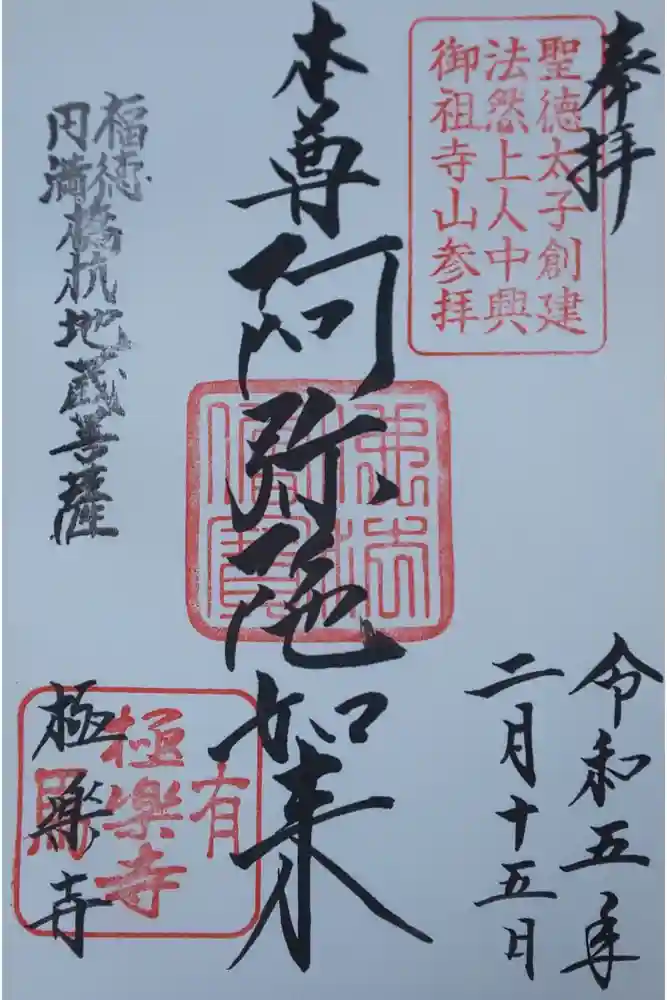 奉拝
聖徳太子創建
法然上人中興
御祖寺山参拝
令和五年
二月十五日
本尊阿弥陀如来
佛法
僧寳
福徳
円満
橋杭地蔵菩薩
有馬
極樂寺
極楽寺